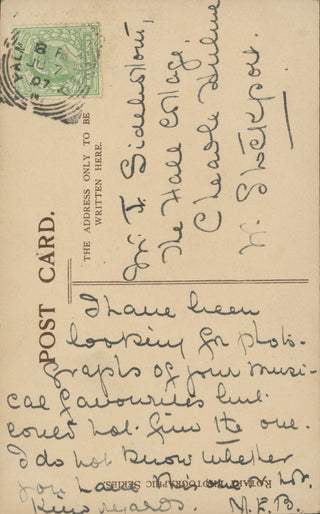 YALM
8 PM
JU
07
POST CARD.
THE ADDRESS ONLY TO BE
WRITTEN HERE.
Mr. F. Sidebottom,
The Hall Cottage,
Cheadle Hulme
Nr. Stockport.
I have been
looking for photo-
graphs of your musi-
cal favourites but
could not find the one.
I do not know whether
you have this one or not.
Kind regards. M.E.B.
ROTARY PHOTOGRAPHIC SERIES